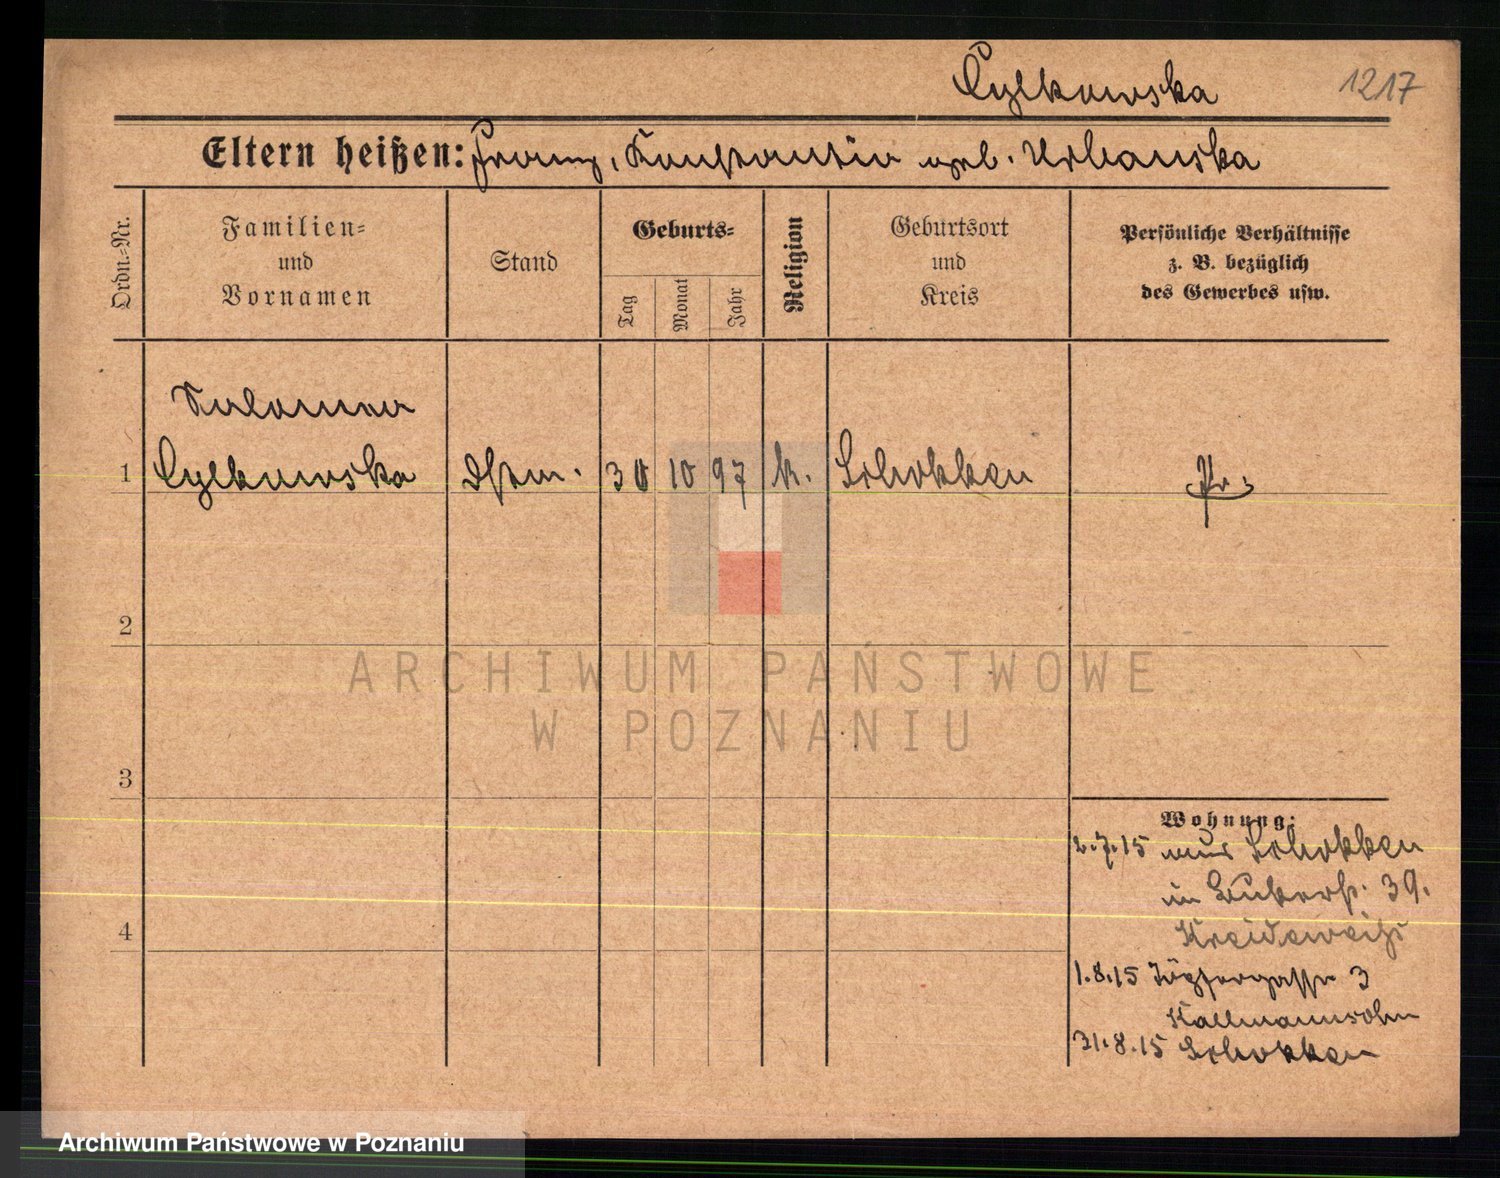 Cylkowska 1217
Eltern heißen: Franz, Konstantia geb. Urbanska
Ordn.-Nr.
Familien-
und
Vornamen
Stand
Geburts-
Tag
Monat
Jahr
Religion
Geburtsort
und
Kreis
Persönliche Verhältnisse
z. B. bezüglich
des Gewerbes usw.
Salomea
1 Cylkowska Dstm. 30 10 97 k. Schokken Pr.
2
3
4
Wohnung:
2.7.15 aus Schokken
in 39.
Kreideweiß
1.8.15 3
Kallmannsohn
31.8.15 Schokken
ARCHIWUM PAŃSTWOWE
W POZNANIU
Archiwum Państwowe w Poznaniu